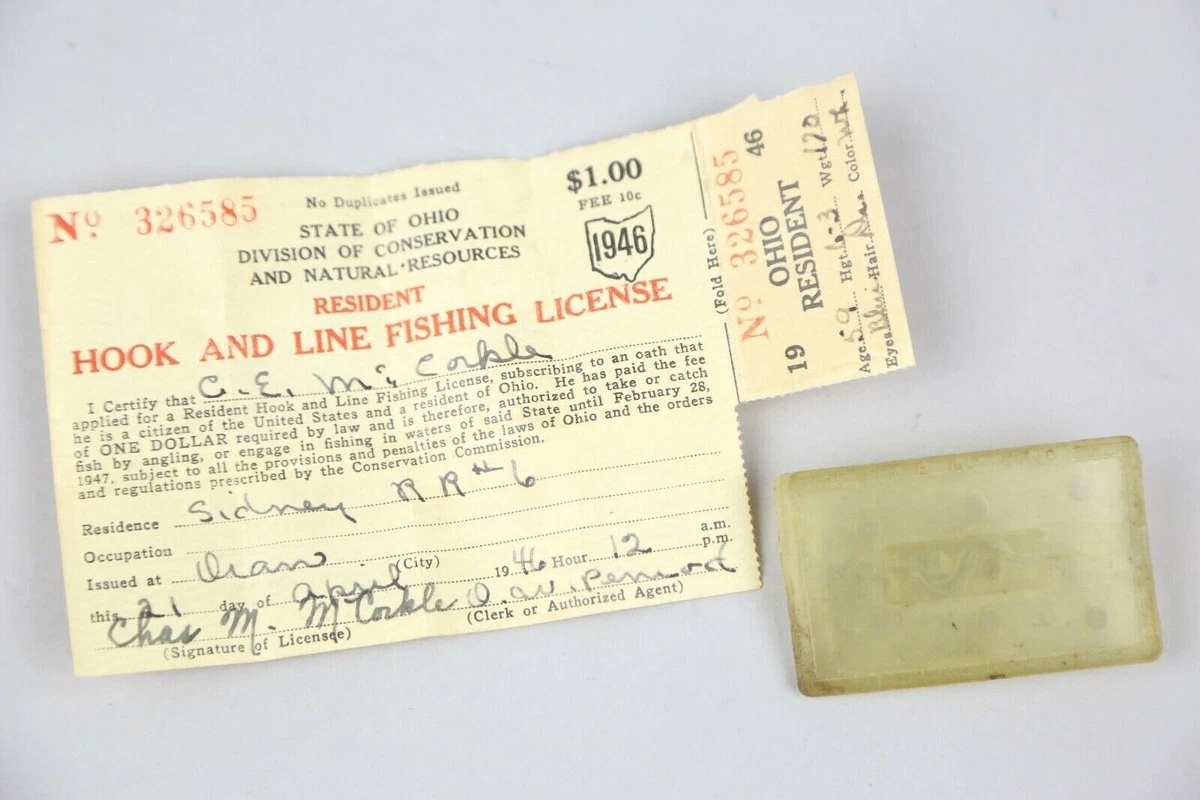 Nº 326585
No Duplicates Issued
$1.00
FEE 10c
STATE OF OHIO
DIVISION OF CONSERVATION
AND NATURAL RESOURCES
1946
RESIDENT
HOOK AND LINE FISHING LICENSE
I Certify that C. E. Mc Corkle
applied for a Resident Hook and Line Fishing License, subscribing to an oath that
he is a citizen of the United States and a resident of Ohio. He has paid the fee
of ONE DOLLAR required by law and is therefore, authorized to take or catch
fish by angling, or engage in fishing in waters of said State until February 28,
1947, subject to all the provisions and penalties of the laws of Ohio and the orders
and regulations prescribed by the Conservation Commission.
Residence Sidney RR # 6
Occupation
Issued at Oran (City) 1946 Hour 12 a.m. p.m.
this 21 day of April
Chas M. McCorkle O. W. Penrod
(Signature of Licensee) (Clerk or Authorized Agent)
(Fold Here)
Nº 326585
19 OHIO 46
RESIDENT
Age 59 Hgt. 6-3 Wgt. 170
Eyes Blue Hair Color Wh.